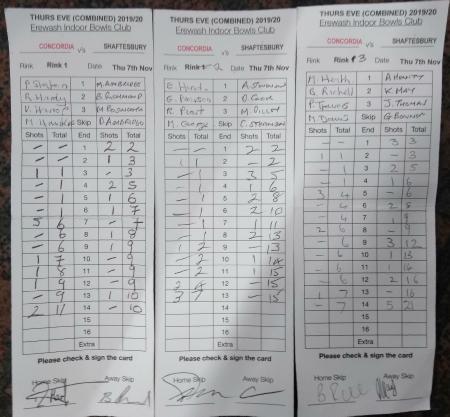 THURS EVE (COMBINED) 2019/20
Erewash Indoor Bowls Club
CONCORDIA v's SHAFTESBURY
Rink Rink 1 Date Thu 7th Nov
1 M. AMBRIDGE
R Hardy 2 B RICHMOND
3
Skip D AMBRIDGE
Shots Total End Shots Total
- - 1 2 2
- - 2 1 3
1 1 3 - 3
- 1 4 2 5
- 1 5 1 6
- 1 6 1 7
5 6 7 - 7
- 6 8 1 8
- 6 9 1 9
1 7 10 - 9
1 8 11 - 9
1 9 12 - 9
- 9 13 1 10
2 11 14 - 10
15
16
Extra
Please check & sign the card
Home Skip Away Skip
THURS EVE (COMBINED) 2019/20
Erewash Indoor Bowls Club
CONCORDIA v's SHAFTESBURY
Rink 2 Date Thu 7th Nov
1
2
3
M. George Skip
Shots Total End Shots Total
- - 1 2 2
1 2 - 2
- 1 3 3 5
- 1 4 1 6
- 1 5 2 8
- 1 6 2 10
- 1 7 1 11
- 1 8 2 13
1 2 9 - 13
- 2 10 1 14
- 2 11 1 15
2 4 12 - 15
3 7 13 - 15
14
15
16
Extra
Please check & sign the card
Home Skip Away Skip
THURS EVE (COMBINED) 2019/20
Erewash Indoor Bowls Club
CONCORDIA v's SHAFTESBURY
Rink 3 Date Thu 7th Nov
M. Heath 1
B. Richell 2 K. MAY
P. Jones 3 J. THOMAS
M. Downs Skip
Shots Total End Shots Total
- - 1 3 3
1 1 2 - 3
- 1 3 2 5
- 1 4 1 6
3 4 5 - 6
- 4 6 2 8
- 4 7 1 9
2 6 8 - 9
- 6 9 3 12
- 6 10 1 13
- 6 11 1 14
- 6 12 2 16
1 7 13 - 16
- 7 14 5 21
15
16
Extra
Please check & sign the card
Home Skip Away Skip